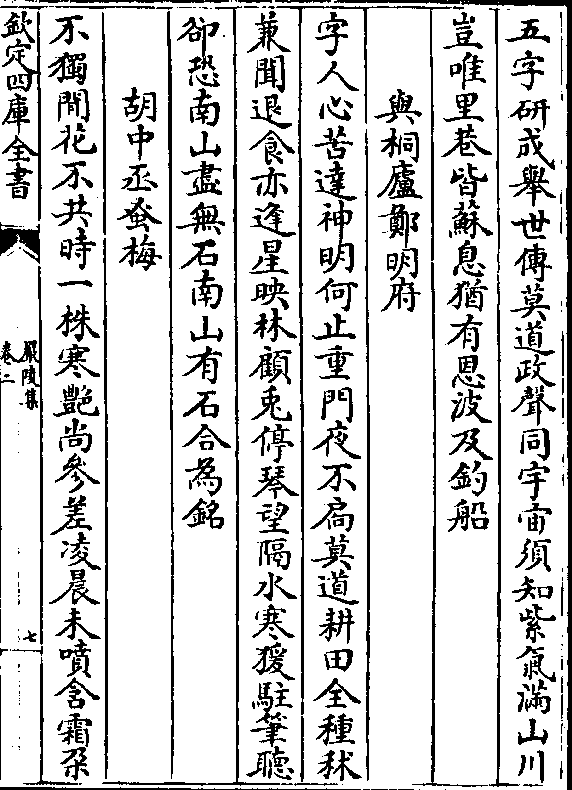 五字研成舉世傳莫道政聲同宇宙須知紫氣滿山川
豈唯里巷皆蘇息猶有恩波及釣船
與桐廬鄭明府
字人心苦達神明何止重門夜不扃莫道耕田全種秫
兼聞退食亦逢星映林顧兎停琴望隔水寒猨駐筆聽
卻恐南山盡無石南山有石合為銘
胡中丞蚤梅
不獨閒花不共時一株寒艶尚參差凌晨未噴含霜朶
欽定四庫全書
嚴陵集
卷二
七